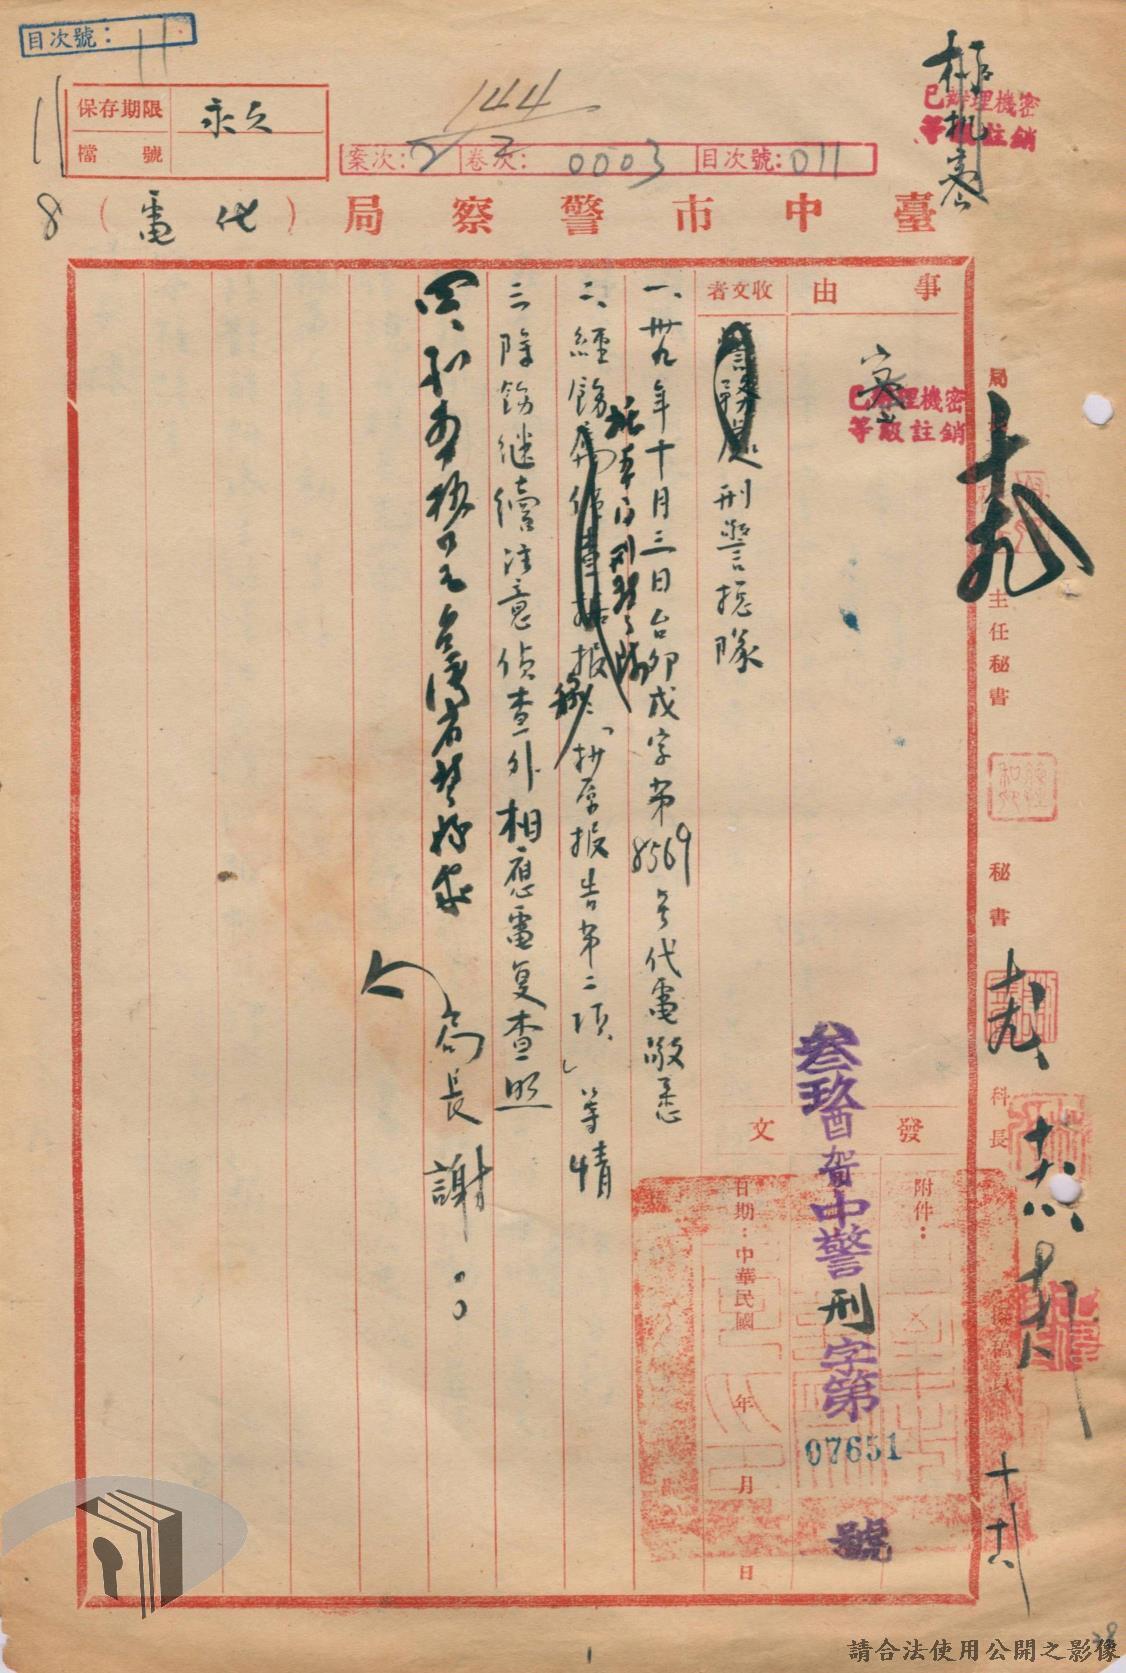 目次號：11
保存期限 永久
檔號
144
案次：2 卷次：2 0003 目次號：011
極機密
已辦理機密
等級註銷
臺中市警察局（代電）
8
事由
密
已辦理機密
等級註銷
收文者
刑警總隊
一、卅九年十月三日台卯戌字第8569號代電敬悉
二、經飭據本局刑警隊報稱「抄原報告第二項」等情
三、除飭繼續注意偵查外相應電复查照
局長謝。。
發文
附件：
日期：中華民國 年 月 日
叁玖酉賀中警刑字第
07651
號
局長
主任秘書
秘書
科長
擬稿員
1
請合法使用公開之影像